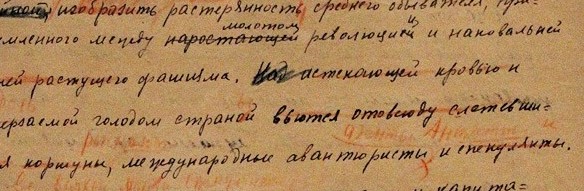 изобразить растерянность среднего обывателя, при-
молотом
емленного между нарастающей революции и наковальней
ней растущего фашизма. Над истекающей кровью и
ерзаемой голодом страной вьются отовсюду слетевши-
я коршуны, международные авантюристы и спекулянты.
капита-